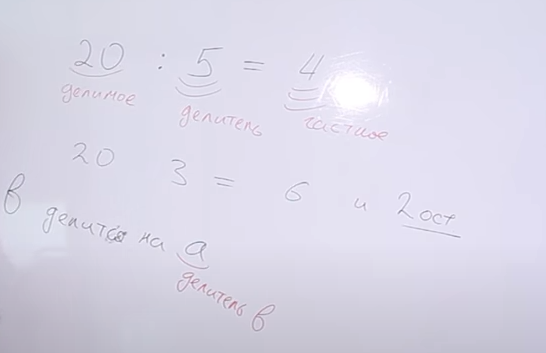 20 : 5 = 4
делимое делитель частное
20 3 = 6 и 2 ост
в делится на а
делитель в